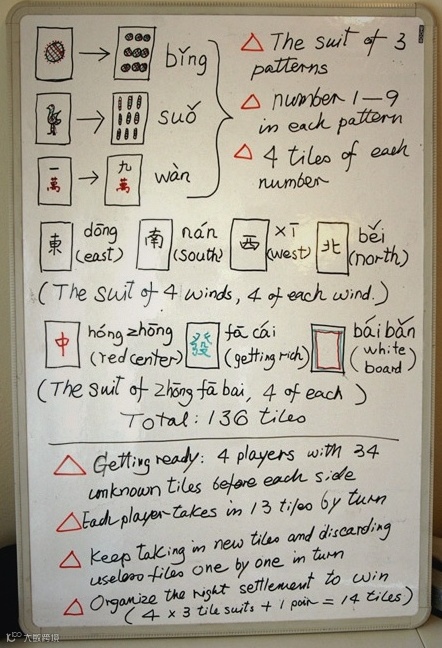 bǐng
suǒ
一萬 九萬 wàn
△ The suit of 3
patterns
△ number 1—9
in each pattern
△ 4 tiles of each
number
東 dōng (east) 南 nán (south) 西 xī (west) 北 běi (north)
(The suit of 4 winds, 4 of each wind.)
中 hóng zhōng (red center) 發 fā cái (getting rich) bái bǎn (white board)
(The suit of zhōng fā bai, 4 of each)
Total: 136 tiles
△ Getting ready: 4 players with 34
unknown tiles before each side
△ Each player takes in 13 tiles by turn
△ Keep taking in new tiles and discarding
useless tiles one by one in turn
△ Organize the right settlement to win
(4 × 3 tile suits + 1 pair = 14 tiles)
大数跨境